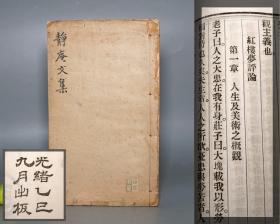 靜庵文集
光緒乙巳
九月出板
觀主義也
紅樓夢評論
第一章 人生及美術之概觀
老子曰人之大患在我有身莊子曰大塊載我以形勞